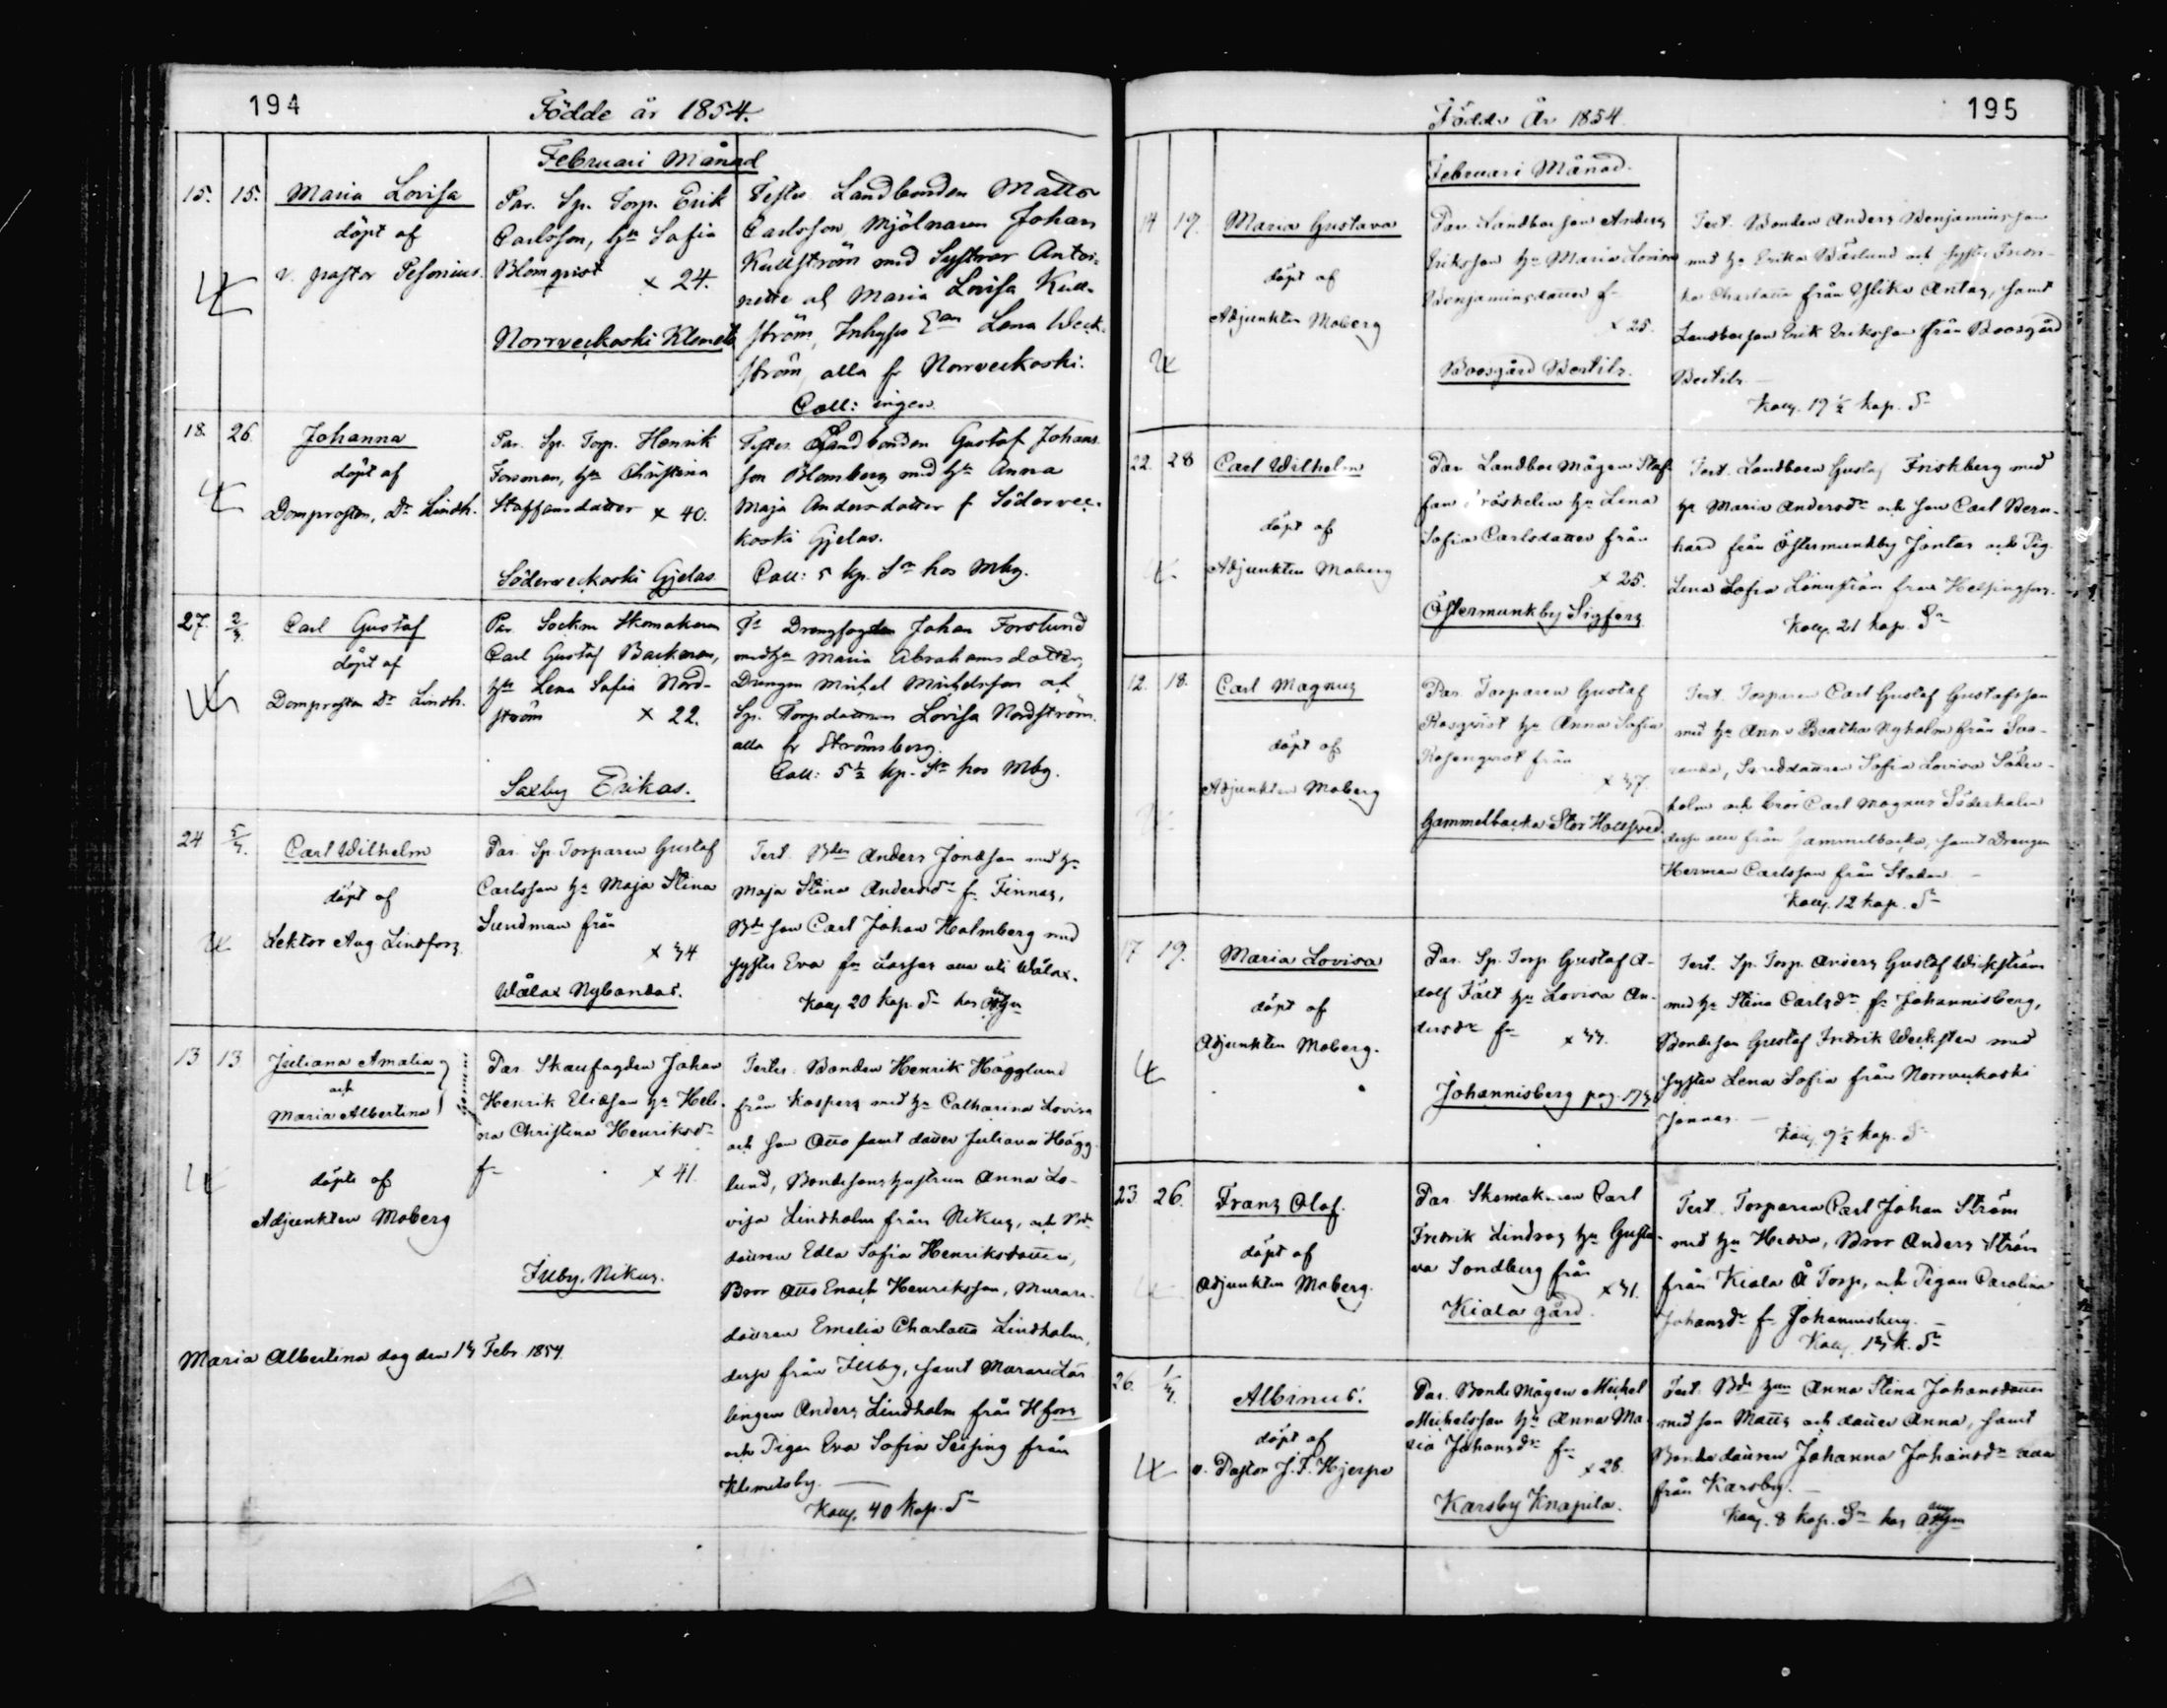 194
Födde år 1854.
Februari Månad
15. 15. Maria Lovisa
döpt af
v. pastor Pesonius.
Par. Sp. Torp. Erik
Carlsson, hu Sofia
Blomqvist x 24.
Norrveckoski Klemets
Testes Landbonden Matts
Carlsson, Mjölnaren Johan
Kullström med Systrar Antoi-
nette och Maria Lovisa Kull-
ström, Inhyses Lena Weck-
ström, alla fr Norrveckoski.
Coll: ingen
18. 26. Johanna
döpt af
Domprosten, Dr Lindh.
Par. Sp. Torp. Henrik
Forsman, hu Christina
Staffansdatter x 40.
Söderveckoski Gjelas
Testes Landbonden Gustaf Johans
son Blomberg med hu Anna
Maja Andersdatter f Södervec-
koski Gjelas.
Coll: 5 kp. Sr hos Mbg.
27. 2/3 Carl Gustaf
döpt af
Domprosten Dr Lindh.
Par. Sockn Skomakaren
Carl Gustaf Backman,
hu Lena Sofia Nord-
ström x 22.
Saxby Erikas.
Ts Drengfogden Johan Forslund
med hu Maria Abrahamsdatter,
Drengen Michel Michelsson och
Sp. Torpdattren Lovisa Nordström
alla fr Strömsberg.
Coll: 5 1/2 kp. Sr hos Mbg.
24 5/3. Carl Wilhelm
döpt af
Lektor Aug Lindfors
Par. Sp. Torparen Gustaf
Carlsson hu Maja Stina
Sundman från
x 34
Wålax Nybondas.
Test. Bden Anders Jonasson med hu
Maja Stina Andersdr fr Finnas,
Bde son Carl Johan Holmberg med
syster Eva fr Lassas alla uti Wålax.
Koll. 20 kop. Sr hos
13 13 Juliana Amalia
och
Maria Albertina
döpte af
Adjunkten Moberg
Par. Skaufogden Johan
Henrik Eliasson hu Hele-
na Christina Henriksdr
fr x 41.
Illby, Nikus.
Testes. Bonden Henrik Hägglund
från Kaspers med hu Catharina Lovisa
och son Otto samt dotter Juliana Hägg-
lund, Bondesonshustrun Anna Lo-
visa Lindholm från Nikus, och Bde
dottren Edla Sofia Henriksdotter,
Bror Otto Enoch Henriksson, Murare-
dottren Emelia Charlotta Lindholm,
desse från Illby, samt Murarelär-
lingen Anders Lindholm från Hfors
och Pigan Eva Sofia Seising från
Klemetsby.
Koll. 40 kop. Sr
Maria Albertina dog den 13 Febr. 1854.
195
Födde År 1854
Februari Månad.
14 19. Maria Gustava
döpt af
Adjunkten Moberg
Par. Landboesonen Anders
Eriksson hu Maria Lovisa
Benjaminsdotter fr
x 25.
Boesgård Bertils.
Test. Bonden Anders Benjaminsson
med hu Erika Wäslund och syster Fredri-
ka Charlotta från Ylike Antas, samt
Landboeson Erik Eriksson från Boesgård
Bertils.
Koll. 19 1/2 kop. Sr
22. 28 Carl Wilhelm
döpt af
Adjunkten Moberg
Par. Landboe Mågen Staf-
fan Tröskelin hu Lena
Sofia Carlsdatter från
x 25.
Östermunkby Sigfors
Test. Landboen Gustaf Friskberg med
hu Maria Andersdr och son Carl Bern-
hard från Östermunkby Jontas och Pig.
Lena Sofia Lönnström från Helsingfors.
Koll. 21 kop. Sr
12. 18. Carl Magnus
döpt af
Adjunkten Moberg
Par. Torparen Gustaf
Rosqvist hu Anna Sofia
Rosenqvist från
x 37.
Gammelbacka Stor Hallsved.
Test. Torparen Carl Gustaf Gustafsson
med hu Anna Beatha Nyholm från
Sofia Lovisa Söder-
holm och bror Carl Magnus Söderholm
desse alla från Gammelbacka, samt Drengen
Herman Carlsson från Staden
Koll. 12 kop. Sr
17 19. Maria Lovisa
döpt af
Adjunkten Moberg.
Par. Sp. Torp Gustaf A-
dolf Fält hu Lovisa An-
dersdr fr x 33.
Johannisberg pag. 173
Test. Sp. Torp. Anders Gustaf Wickström
med hu Stina Carlsdr fr Johannisberg,
Bondeson Gustaf Fredrik Wecksten med
syster Lena Sofia från Norrveckoski
Jonnas.
Koll. 9 1/2 kop. Sr
23. 26. Frans Olof.
döpt af
Adjunkten Moberg.
Par. Skomakaren Carl
Fredrik Lindroos hu Gusta-
va Sondberg från
x 31.
Kiala gård
Test. Torparen Carl Johan Ström
med hu Hedda, Bror Anders Ström
från Kiala Å Torp, och Pigan Carolina
Johansdr fr Johannisberg.
Koll. 13 k. Sr
26. 1/3. Albinus.
döpt af
v. Pastor J. F. Hjerpe
Par. Bonde Mågen Michel
Michelsson hu Anna Ma-
ria Johansdr fr
x 28.
Karsby Knapila.
Test. Bde hun Anna Stina Johansdotter
med son Matts och dotter Anna, samt
Bondedottren Johanna Johansdr alla
från Karsby.
Koll. 8 kop. Sr hos